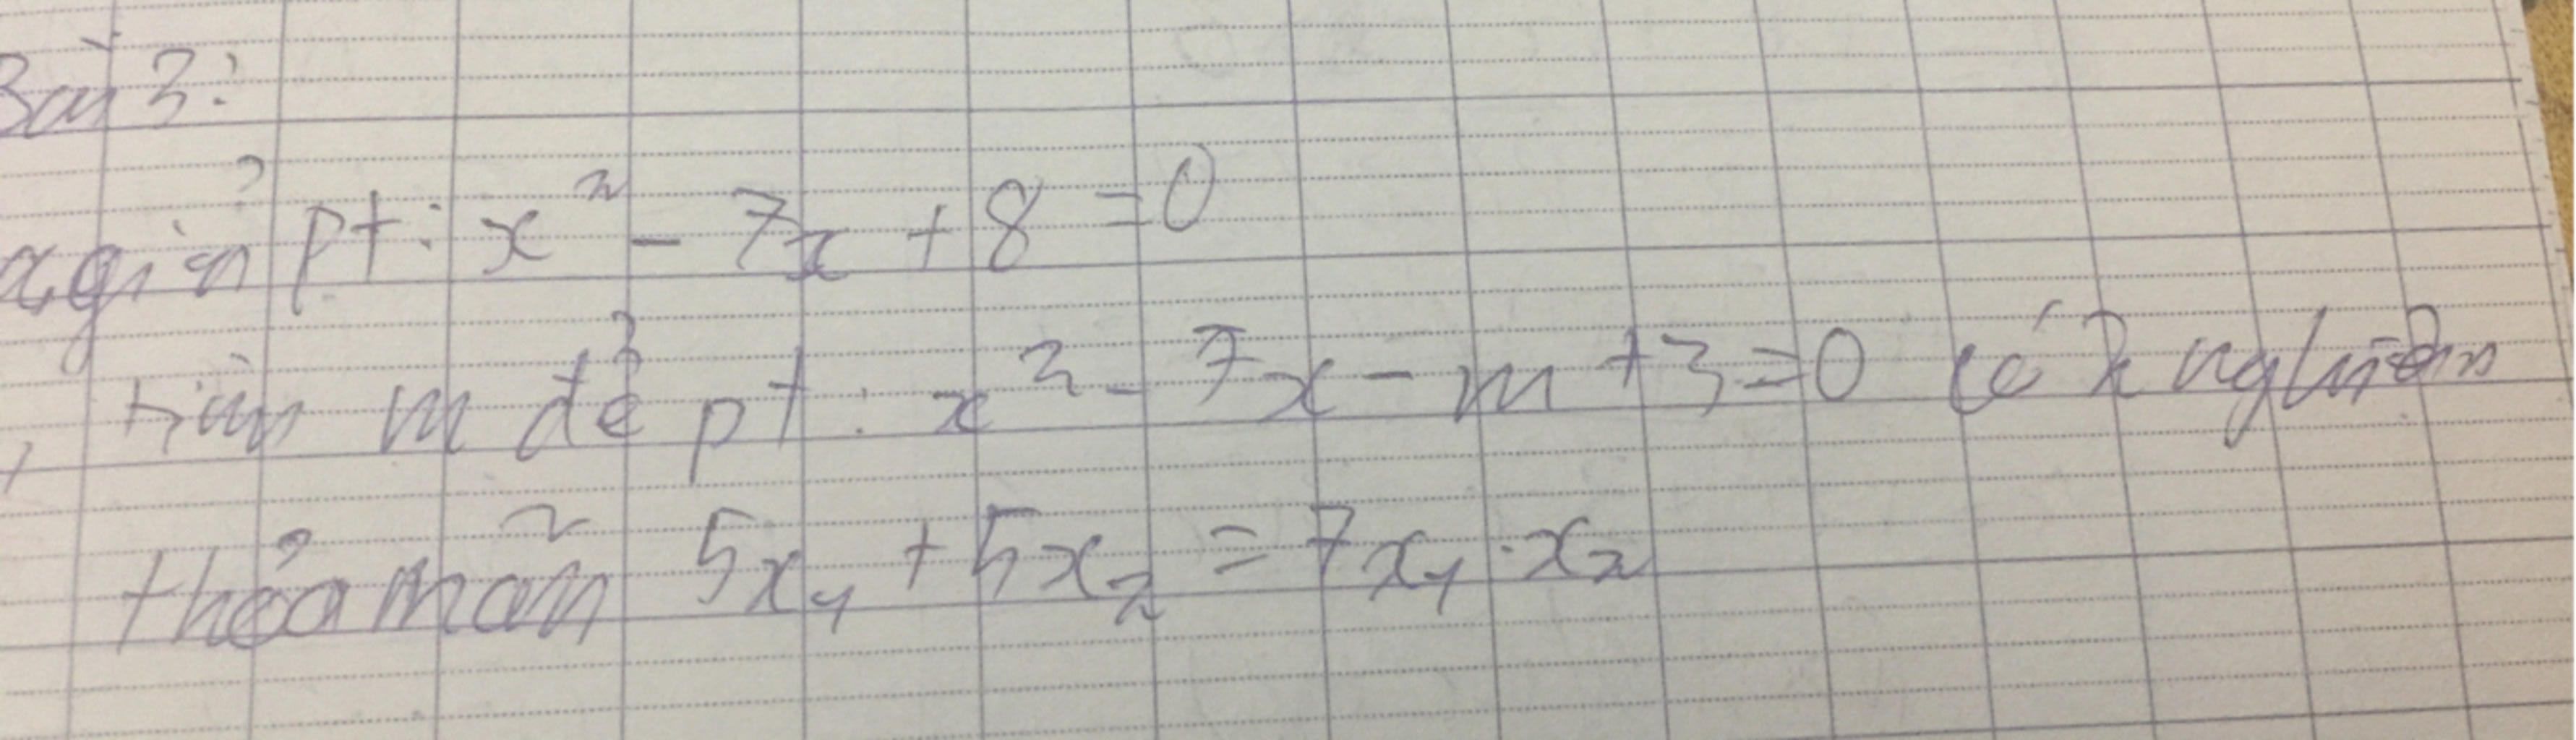 Bài 3:
a, giải pt: x² - 7x + 8 = 0
, tìm m để pt: x² - 7x - m + 3 = 0 có 2 nghiệm
thỏa mãn 5x₁ + 5x₂ = 7x₁.x₂